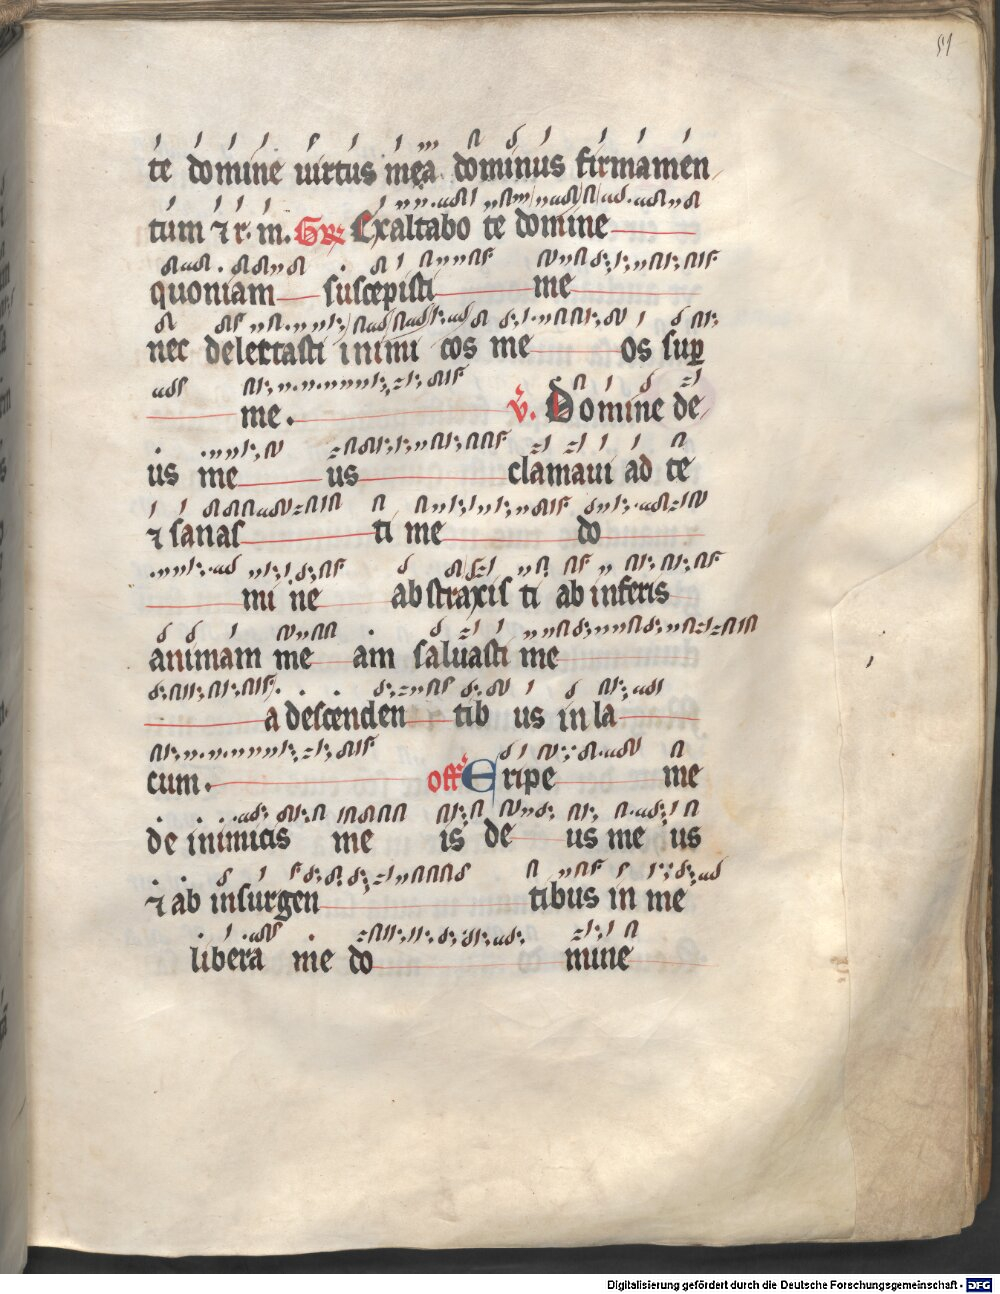 51
te domine uirtus mea dominus firmamen
tum ⁊ r. m. Gr Exaltabo te domine
quoniam suscepisti me
nec delectasti inimi cos me os sup
me. v. Domine de
us me us clamaui ad te
⁊ sanas ti me do
mi ne abstraxis ti ab inferis
animam me am saluasti me
a descenden tib us in la
cum. off Eripe me
de inimicis me is de us me us
⁊ ab insurgen tibus in me
libera me do mine
Digitalisierung gefördert durch die Deutsche Forschungsgemeinschaft - DFG